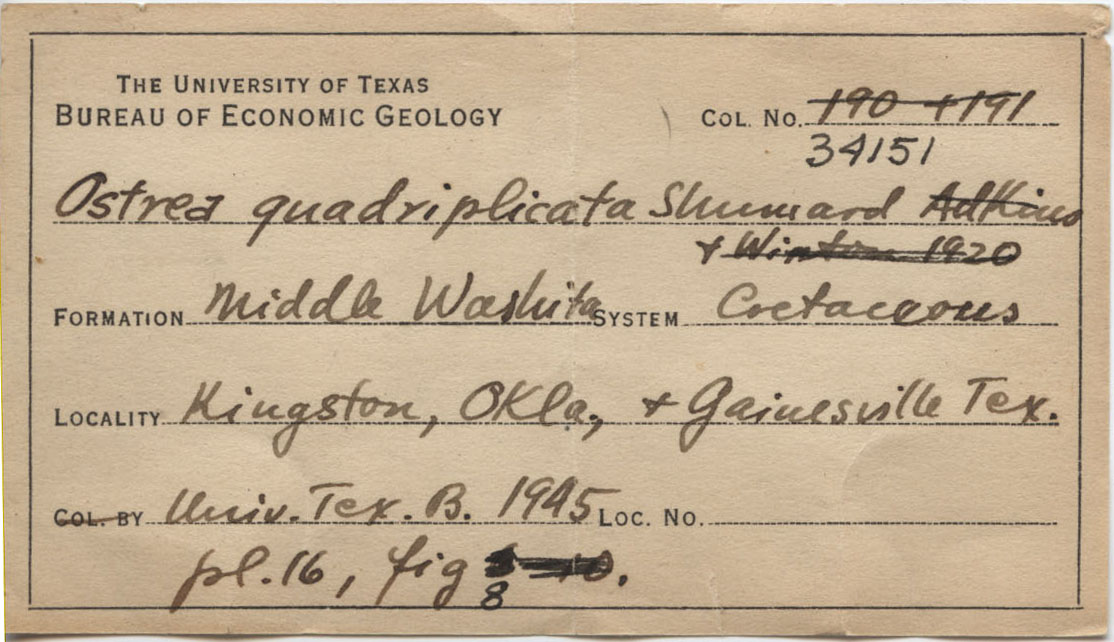 THE UNIVERSITY OF TEXAS
BUREAU OF ECONOMIC GEOLOGY
COL. NO. 190 + 191
34151
Ostrea quadriplicata Shumard Adkins
+ Winton 1920
FORMATION Middle Washita SYSTEM Cretaceous
LOCALITY Kingston, Okla, + Gainesville Tex.
COL. BY Univ. Tex. B. 1945 LOC. NO.
pl. 16, fig 10.
8